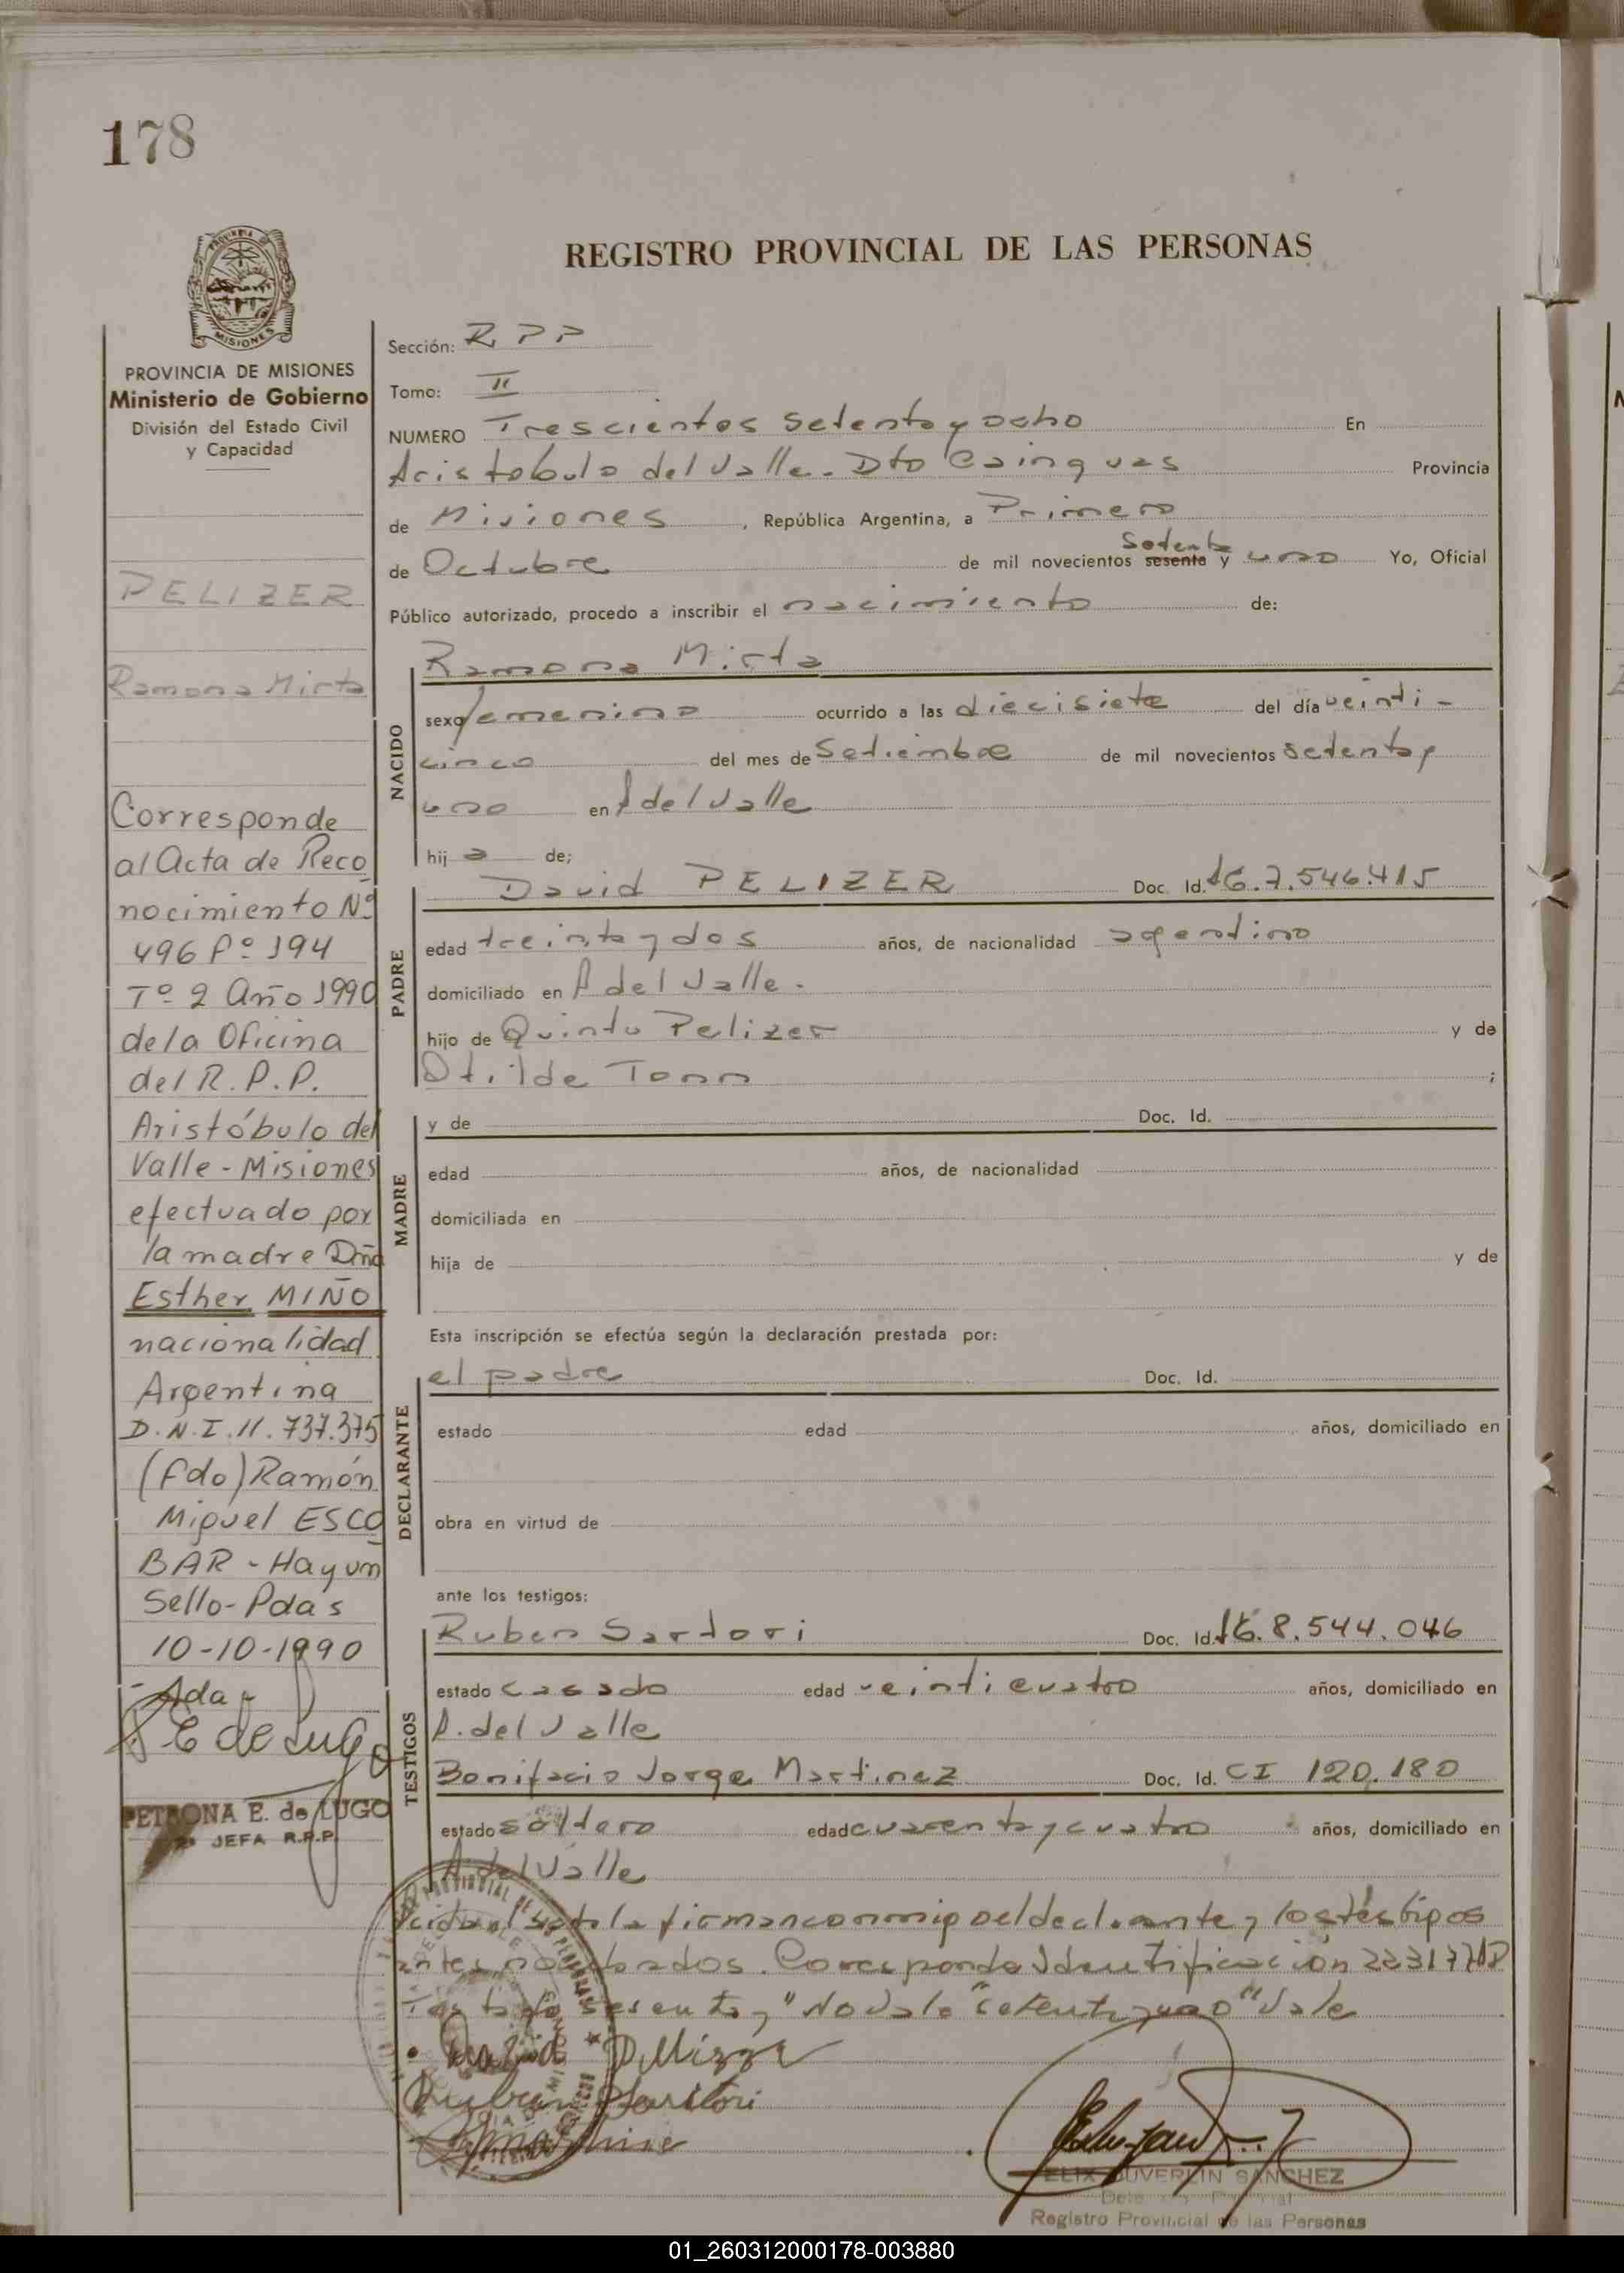 178
REGISTRO PROVINCIAL DE LAS PERSONAS
PROVINCIA DE MISIONES
Ministerio de Gobierno
División del Estado Civil
y Capacidad
PELIZER
Ramona Mirta
Corresponde
al Acta de Reco
nocimiento Nº
496 Fº 194
Tº 2 Año 1990
de la Oficina
del R.P.P.
Aristóbulo del
Valle - Misiones
efectuado por
la madre Dña
Esther MIÑO
nacionalidad
Argentina
D.N.I. 11.737.375
(Fdo) Ramón
Miguel ESCO
BAR - Hay un
Sello - Pdas
10-10-1990
PETRONA E. de LUGO
JEFA R.P.P.
Sección: R P P
Tomo: II
NUMERO Trescientos setenta y ocho En
Aristobulo del Valle - Dto Cainguas Provincia
de Misiones, República Argentina, a Primero
de Octubre de mil novecientos sesenta y setenta uno Yo, Oficial
Público autorizado, procedo a inscribir el nacimiento de:
Ramona Mirta
NACIDO
sexo femenino ocurrido a las diecisiete del día veinti-
cinco del mes de Setiembre de mil novecientos setenta y
uno en A del Valle
hija de;
David PELIZER Doc. Id. 7.546.415
PADRE
edad treinta y dos años, de nacionalidad agentino
domiciliado en A del Valle.
hijo de Quinto Pelizer y de
Otilde Tonn ;
y de Doc. Id.
MADRE
edad años, de nacionalidad
domiciliada en
hija de y de
Esta inscripción se efectúa según la declaración prestada por:
el padre Doc. Id.
DECLARANTE
estado edad años, domiciliado en
obra en virtud de
ante los testigos:
Ruben Sartori Doc. Id. 8.544.046
TESTIGOS
estado casado edad veinticuatro años, domiciliado en
A. del Valle
Bonifacio Jorge Martinez Doc. Id. CI 120.180
estado soltero edad cuarenta y cuatro años, domiciliado en
A del Valle
Leida el acta la firman conmigo el declarante y los testigos
antes nombrados. Corresponde Identificación
Testado "sesenta y" No vale "setenta y uno" Vale
Ruben Sartori
FELIX DUVERLIN SANCHEZ
Registro Provincial de las Personas
01_260312000178-003880